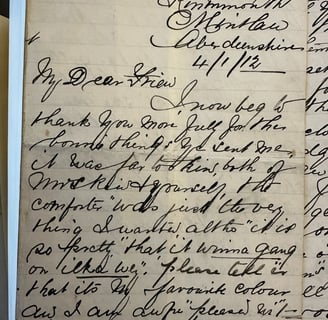 Kininmonth
Mintlaw
Aberdeenshire
4/1/12
My Dear Friew
I now beg to
thank you more full for the
bonnie things ye sent me,
it was far to kin, both of
Mrs & yourself the
comforter "was just" the very
thing I wanted, altho "it is
so pretty" that it winna gang
on "ilka wey". "please tell
that its My favourite colour
an I am awfu "pleased wi't